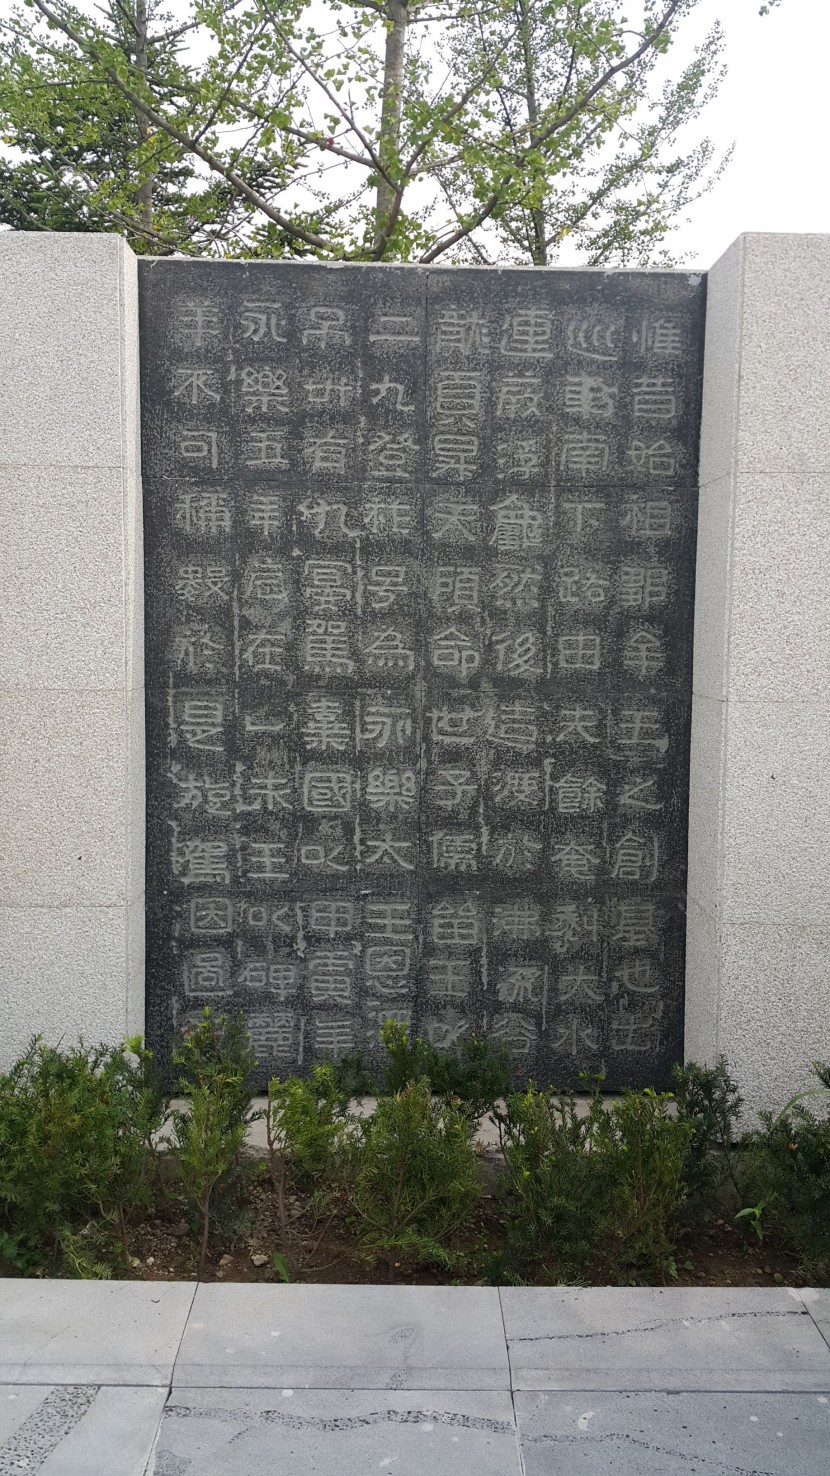 惟昔始祖鄒牟王之創基也出
巡車南下路由夫餘奄利大水
連葭浮龜然後造渡於沸流谷
龍頁昇天顧命世子儒留王以
二九登祚号為永樂太王恩澤
弔卅有九寔駕棄國以甲寅年
永樂五年歲在乙未王以碑麗
羊不可稱數於是旋駕因過